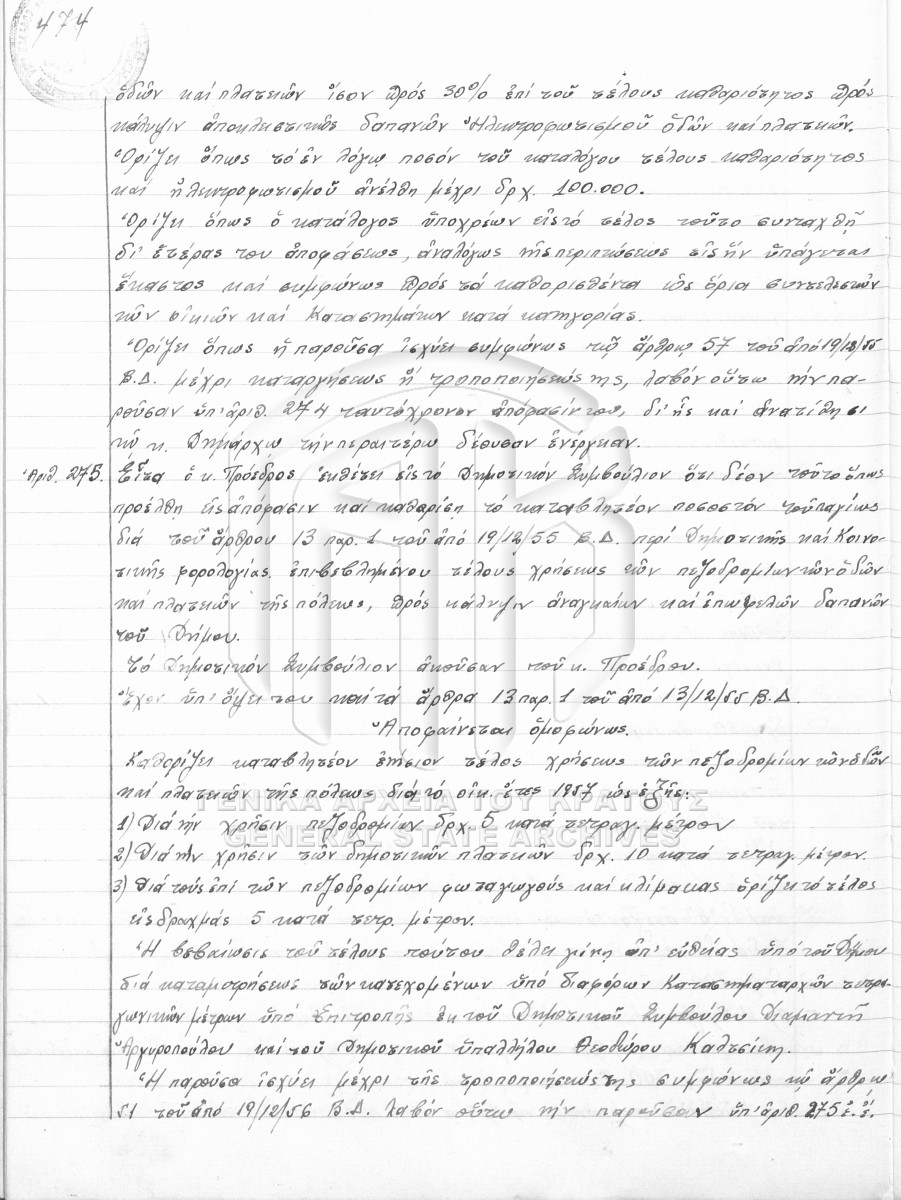 474
ὁδῶν καί πλατειῶν ἴσον πρός 30% ἐπί τοῦ τέλους καθαριότητος πρός
κάλυψιν ἀποκλειστικῶς δαπανῶν Ἠλεκτροφωτισμοῦ ὁδῶν καί πλατειῶν.
Ὁρίζει ὅπως τό ἐν λόγῳ ποσόν τοῦ καταλόγου τέλους καθαριότητος
καί ἠλεκτροφωτισμοῦ ἀνέλθη μέχρι δρχ. 100.000.
Ὁρίζει ὅπως ὁ κατάλογος ὑποχρέων εἰς τό τέλος τοῦτο συνταχθῆ
δι' ἑτέρας του ἀποφάσεως, ἀναλόγως τῆς περιπτώσεως εἰς ἥν ὑπάγεται
ἕκαστος καί συμφώνως πρός τά καθορισθέντα ὡς ὅρια συντελεστῶν
τῶν οἰκιῶν καί Καταστημάτων κατά κατηγορίας.
Ὁρίζει ὅπως ἡ παροῦσα ἰσχύει συμφώνως τῷ ἄρθρῳ 57 τοῦ ἀπό 19/12/55
Β.Δ. μέχρι καταργήσεως ἤ τροποποιήσεώς της, λαβόν οὕτω τήν πα-
ροῦσαν ὑπ' ἀριθ. 274 ταυτόχρονον ἀπόφασίν του, δι' ἧς καί ἀνατίθησι
τῷ κ. Δημάρχω τήν περαιτέρω δέουσαν ἐνέργειαν.
Ἀριθ. 275. Εἶτα ὁ κ. Πρόεδρος ἐκθέτει εἰς τό Δημοτικόν Συμβούλιον ὅτι δέον τοῦτο ὅπως
προέλθη εἰς ἀπόφασιν καί καθορίση τό καταβλητέον ποσοστόν τοῦ παγίως
διά τοῦ ἄρθρου 13 παρ. 1 τοῦ ἀπό 19/12/55 Β.Δ. περί Δημοτικῆς καί Κοινο-
τικῆς φορολογίας ἐπιβεβλημένου τέλους χρήσεως τῶν πεζοδρομίων τῶν ὁδῶν
καί πλατειῶν τῆς πόλεως, πρός κάλυψιν ἀναγκαίων καί ἐπωφελῶν δαπανῶν
τοῦ Δήμου.
Τό Δημοτικόν Συμβούλιον ἀκοῦσαν τοῦ κ. Προέδρου.
Ἔχον ὑπ' ὄψει του καί τά ἄρθρα 13 παρ. 1 τοῦ ἀπό 13/12/55 Β.Δ
Ἀποφαίνεται ὁμοφώνως.
Καθορίζει καταβλητέον ἐτήσιον τέλος χρήσεως τῶν πεζοδρομίων τῶν ὁδῶν
καί πλατειῶν τῆς πόλεως διά τό οἰκ. ἔτος 1957 ὡς ἑξῆς:
ΓΕΝΙΚΑ ΑΡΧΕΙΑ ΤΟΥ ΚΡΑΤΟΥΣ
1) Διά τήν χρῆσιν πεζοδρομίων δρχ. 5 κατά τετραγ. μέτρον
GENERAL STATE ARCHIVES
2) Διά τήν χρῆσιν τῶν δημοτικῶν πλατειῶν δρχ. 10 κατά τετραγ. μέτρον.
3) Διά τούς ἐπί τῶν πεζοδρομίων φωταγωγούς καί κλίμακας ὁρίζει τό τέλος
εἰς δραχμάς 5 κατά τετρ. μέτρον.
Ἡ βεβαίωσις τοῦ τέλους τούτου θέλει γίνη ἀπ' εὐθείας ὑπό τοῦ Δήμου
διά καταμετρήσεως τῶν κατεχομένων ὑπό διαφόρων Καταστηματαρχῶν τετρα-
γωνικῶν μέτρων ὑπό Ἐπιτροπῆς ἐκ τοῦ Δημοτικοῦ Συμβούλου Διαμαντῆ
Ἀργυροπούλου καί τοῦ Δημοτικοῦ ὑπαλλήλου Θεοδώρου Καλτσίκη.
Ἡ παροῦσα ἰσχύει μέχρι τῆς τροποποιήσεώς της συμφώνως τῷ ἄρθρῳ
51 τοῦ ἀπό 19/12/56 Β.Δ. λαβόν οὕτω τήν παροῦσαν ὑπ' ἀριθ. 275